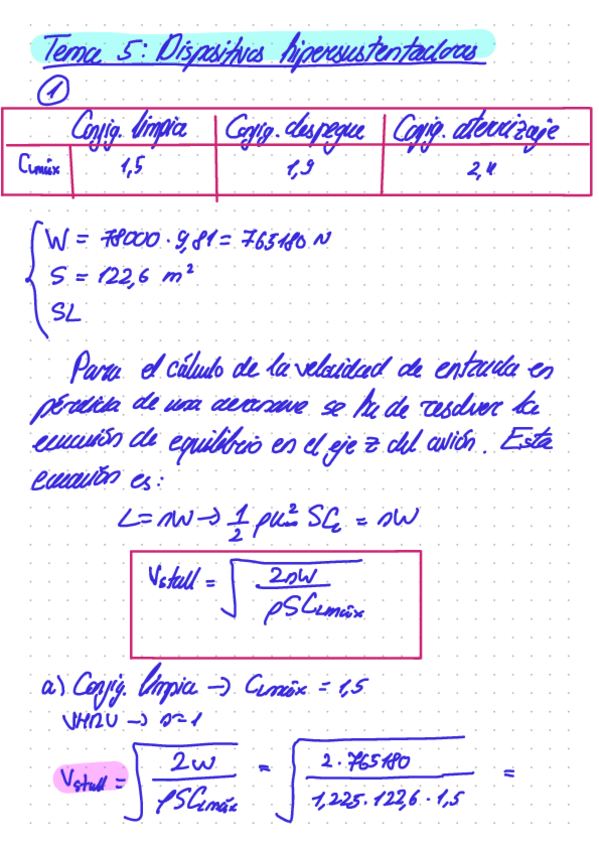 Tema 5: Dispositivos hipersustentadores
1
Config. limpia Config. despegue Config. aterrizaje
CLmáx 1,5 1,9 2,4
W = 78000 · 9,81 = 765180 N
S = 122,6 m²
SL
Para el cálculo de la velocidad de entrada en
pérdida de una aeronave se ha de resolver la
ecuación de equilibrio en el eje z del avión. Esta
ecuación es:
L = nW → 1/2 ρu∞² SCL = nW
Vstall = √(2nW / ρSCLmáx)
a) Config. limpia → CLmáx = 1,5
VHRU → n=1
Vstall = √(2W / ρSCLmáx) = √(2 · 765180 / 1,225 · 122,6 · 1,5) =